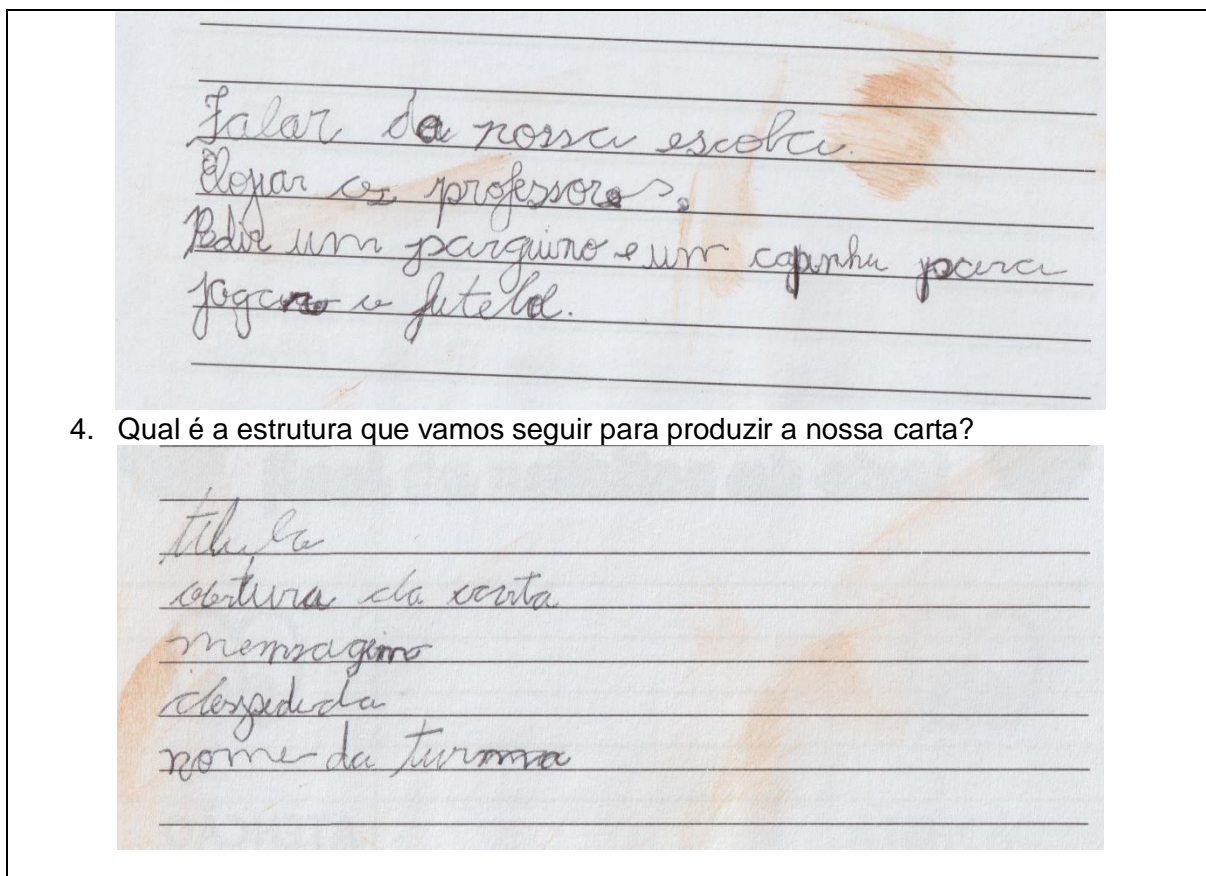 Falar da nossa escola.
Elojiar os professores.
Pedir um parquino e um capinhu para
jogar o futebol.
4. Qual é a estrutura que vamos seguir para produzir a nossa carta?
abertura da carta
mensagem
despedida
nome da turma